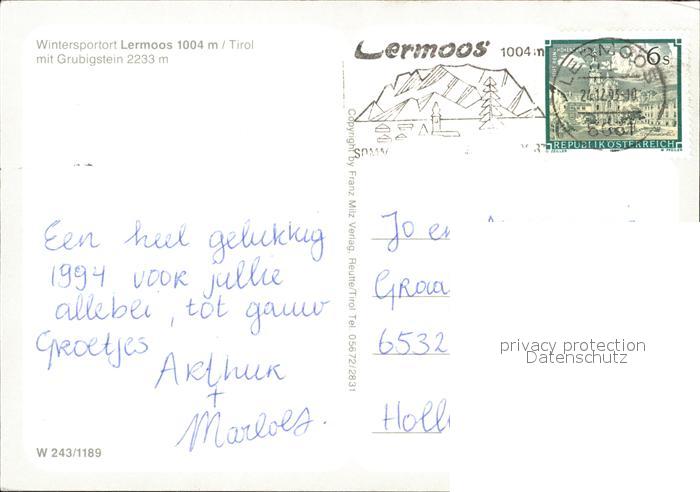 Wintersportort Lermoos 1004 m / Tirol
mit Grubigstein 2233 m
Lermoos 1004 m
6 s
REPUBLIK ÖSTERREICH
Copyright by Franz Milz Verlag, Reutte/Tirol Tel. 05672/2831
Een heel gelukkig
1994 voor jullie
allebei, tot gauw
Groetjes
Arthur
+
Marloes.
Jo en
Graa
6532
Holl
privacy protection
Datenschutz
W 243/1189